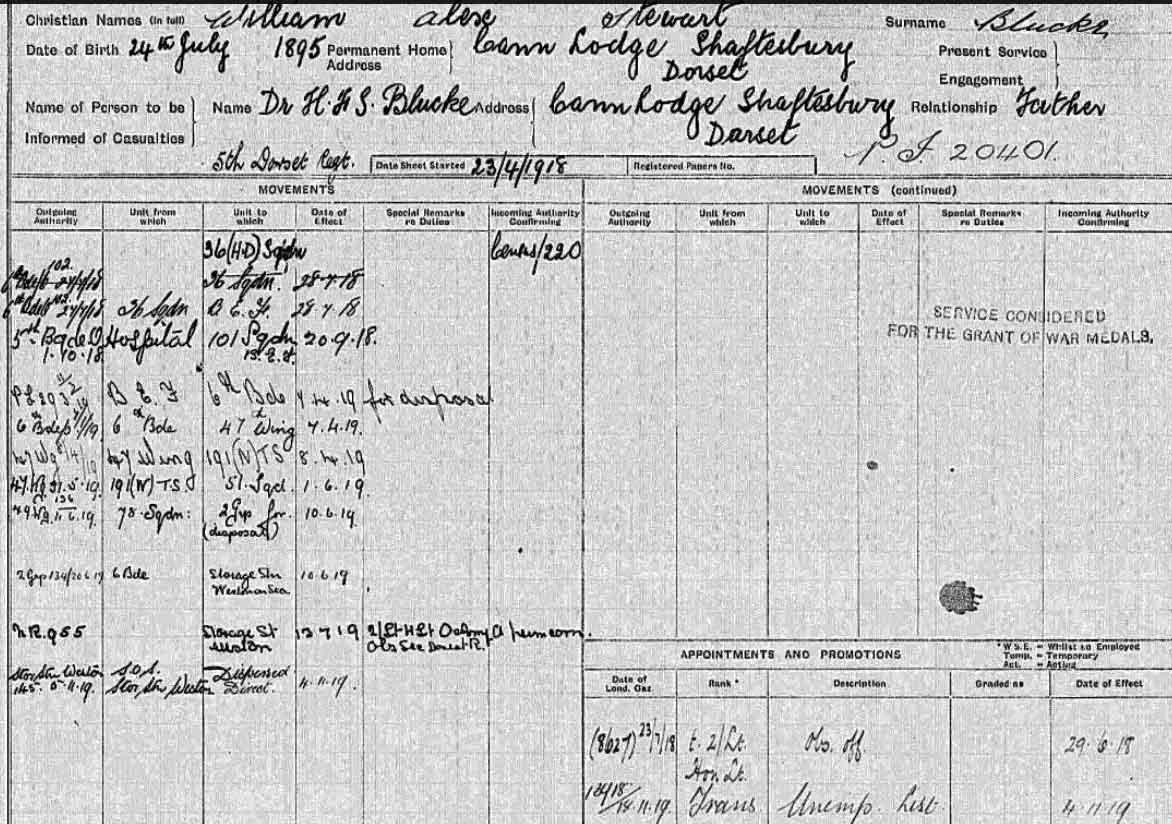 Christian Names (in full) William Alex Stewart Surname Blucke
Date of Birth 24th July 1895 Permanent Home Address Cann Lodge Shaftesbury Dorset Present Service Engagement
Name of Person to be Informed of Casualties Name Dr H. F. S. Blucke Address Cann Lodge Shaftesbury Dorset Relationship Father
P.I. 20401.
5th Dorset Regt. Date Sheet Started 23/4/1918 Registered Papers No.
MOVEMENTS
Outgoing Authority Unit from which Unit to which Date of Effect Special Remarks re Duties Incoming Authority Confirming
36(HD) Sqdn Census/220
102. 36 Sqdn. 28-7-18
6th Bde 36 Sqdn B.E.F. 28.7.18
5th Bde Hospital 101 Sqdn 20.9.18.
1.10.18. B.E.F.
B E F 6th Bde 7.4.19 for disposal
6 Bde 6th Bde 47th Wing 7.4.19.
47 Wg 47 Wing 191(N)TS 8.4.19
47.Wg 31.5.19. 191(N)T.S 51.Sqd. 1.6.19.
49 Wg 11.6.19. 78 Sqdn: 2 Grp for (disposal) 10.6.19
2 Grp 134/20 6 19 6 Bde Storage Stn 10.6.19
N.R. 955 Storage St Weston 13 7 19 perm com.
Stor Stn Weston S.O.S. Dispersed
145. 5.11.19. Stor Stn Weston Direct. 4.11.19.
MOVEMENTS (continued)
Outgoing Authority Unit from which Unit to which Date of Effect Special Remarks re Duties Incoming Authority Confirming
SERVICE CONSIDERED
FOR THE GRANT OF WAR MEDALS.
APPOINTMENTS AND PROMOTIONS
* W.S.E. = Whilst so Employed
Temp. = Temporary
Act. = Acting
Date of Lond. Gaz. Rank * Description Graded as Date of Effect
(8627) 23/7/18 t. 2/Lt. Obs. Off. 29.6.18
Hon Lt.
18.11.19. Trans Unemp. List 4.11.19